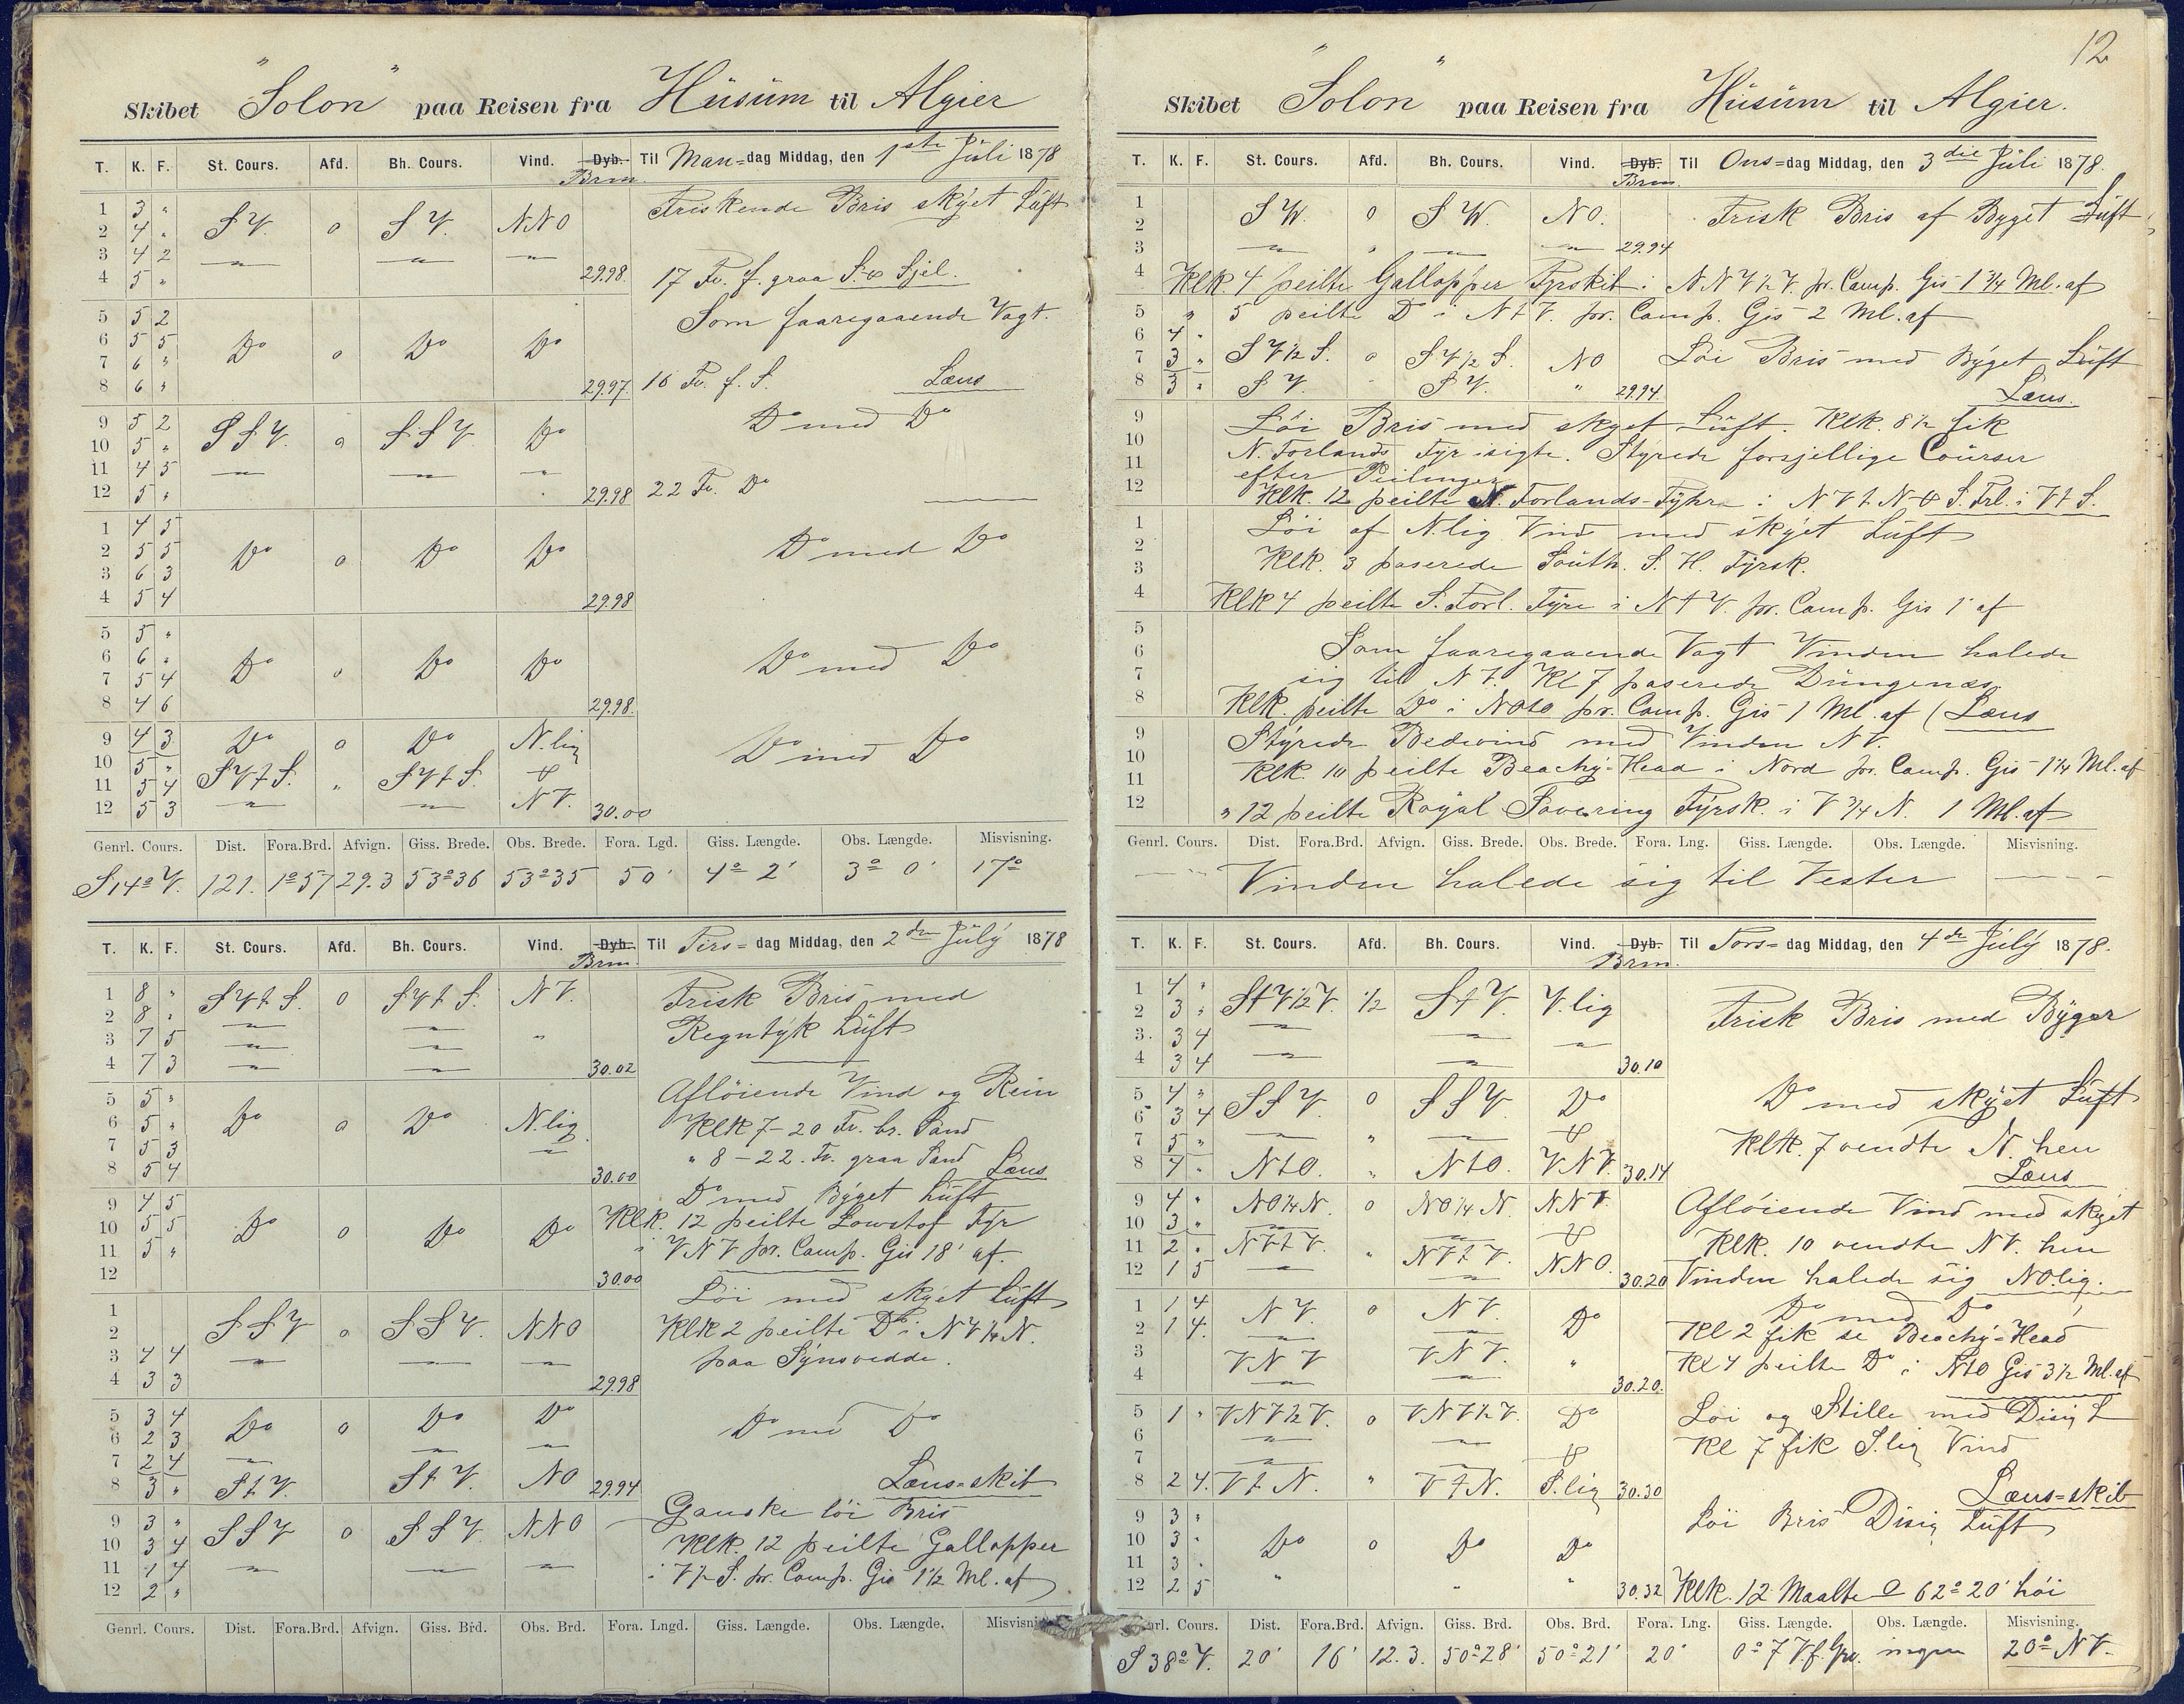 Skibet "Solon" paa Reisen fra Hüsüm til Algier
T. K. F. St. Cours. Afd. Bh. Cours. Vind. Dyb. Brm. Til Man=dag Middag, den 1ste Jüli 1878
1 3 "
2 4 " S V. 0 S V. NNO Friskende Bris skÿet Lüft
3 4 2 — — —
4 5 " 29.98. 17 Fv. f. graa S. & Sjel.
5 5 2 Som faaregaaende Vagt.
6 5 5 Do 0 Do Do
7 6 "
8 6 " 29.97. 16 Fv. f. S. Læns
9 5 2 Do med Do
10 5 " S S V. 0 S S V. Do
11 4 5 — — —
12 5 " 29.98 22 Fv. Do
1 4 5
2 5 5 Do 0 Do Do Do med Do
3 6 3
4 5 4 29.98
5 5 "
6 6 " Do 0 Do Do Do med Do
7 5 4
8 4 6 29.98.
9 4 3 Do 0 Do N.lig Do med Do
10 5 " S V t S. " S V t S. &
11 5 4
12 5 3 — — N V. 30.00
Genrl. Cours. Dist. Fora.Brd. Afvign. Giss. Brede. Obs. Brede. Fora. Lgd. Giss. Længde. Obs. Længde. Misvisning.
S 14° V. 121. 1°57 29.3 53°36 53°35 50' 4° 2' 3° 0' 17°
T. K. F. St. Cours. Afd. Bh. Cours. Vind. Dyb. Brm. Til Tirs=dag Middag, den 2den Jülÿ 1878
1 8 " S V t S. 0 S V t S. N V. Frisk Bris med
2 8 " — —
3 7 5 — — " Regntÿk Lüft
4 7 3 — — 30.02
5 5 " Afløiende Vind og Rein
6 5 " Do 0 Do N.lig Klk 7 – 20 Fv. br. Sand
7 5 3 —
8 5 4 30.00 " 8 – 22. Fv. graa Sand Læns
9 4 5 Do med Bÿget Lüft
10 5 5 Do 0 Do Do Klk. 12 peilte Lowstof Fÿr
11 5 " i V N V pr. Camp. Gis 18' af.
12 30.00
1 Løi med skÿet Lüft
2 S S V 0 S S V. NNO Klk 2 peilte Do i N V ¼ N.
3 4 4 — — — paa Sÿnsvedde.
4 3 3 29.98
5 3 4 Do 0 Do Do
6 2 3 — — Do med Do
7 2 4 —
8 3 " S t V. S t V. NO 29.94 Læns=skib
9 3 " S S V 0 S S V. NNO Ganske løi Bris
10 3 4 Klk. 12 peilte Gallopper
11 1 4 — — — i V ½ S. pr. Camp. Gis 1½ Ml. af
12 2 "
Genrl. Cours. Dist. Fora.Brd. Afvign. Giss. Brd. Obs. Brd. Fora. Lngd. Giss. Længde. Obs. Længde. Misvisni
12
Skibet "Solon" paa Reisen fra Hüsüm til Algier.
T. K. F. St. Cours. Afd. Bh. Cours. Vind. Dyb. Brm. Til Ons=dag Middag, den 3die Jüli 1878.
1
2 S W. 0 S W. NO. Frisk Bris af Bÿget Lüft
3 — " — — 29.94
4 Klk. 4 peilte Gallopper Fyrskib i N N V ½ V. pr. Camp. Gis 1¾ Ml. af
5 " 5 peilte Do i N t V. pr. Camp. Gis 2 Ml. af
6 4 "
7 3 " S V ½ S. 0 S V ½ S. NO Løi Bris med Bÿget Lüft
8 3 " S V. " S V. " 29.94. Læns.
9 Løi Bris med skÿet Lüft. Klk. 8½ fik
10 N. Forlands Fÿr isigte. Stÿrede forsjellige Coürser
11 efter Peilinger
12 Klk. 12 peilte N. Forlands-Fÿhr i N V t N & S. Frl. i V t S.
1 Løi af N.lig Vind med skÿet Lüft
2
3 Klk. 3 paserede Soüth. S. H. Fÿrsk.
4 Klk 4 peilte S. Forl. Fÿre i N t V. pr. Camp. Gis 1' af
5
6 Som faaregaaende Vagt Vinden halede
7 sig til N V. Kl 7 paserede Düngenæs.
8 Klk. peilte Do i NOtO pr. Camp. Gis 1 Ml. af (Læns
9 Stÿrede Bedevind med Vinden N V.
10 Klk. 10 peilte Beachÿ=Head i Nord pr. Camp. Gis 1¼ Ml. af
11
12 " 12 peilte Royal Sovering Fÿrsk. i V ¾ N. 1 Ml. af
Genrl. Cours. Dist. Fora.Brd. Afvign. Giss. Brede. Obs. Brede. Fora. Lng. Giss. Længde. Obs. Længde. Misvisning.
Vinden halede sig til Vester
T. K. F. St. Cours. Afd. Bh. Cours. Vind. Dyb. Brm. Til Tors=dag Middag, den 4de Jülÿ 1878.
1 4 "
2 3 " S t V ½ V. ½ S t V. V.lig Frisk Bris med Bÿger
3 3 4 — — —
4 3 4 — — 30.10
5 4 " S S V. 0 S S V. Do Do med skÿet Lüft
6 3 4
7 5 " — " — & Klk. 7 vendte N. hen
8 4 " N t O. " N t O. V N V. 30.14 Læns
9 4 " NO ¼ N. 0 NO ¼ N. N N V. Afløiende Vind med skÿet
10 3 " — — &
11 2 " N V t V. " N V t V. Klk. 10 vendte N V. hen
12 1 5 — — NNO. 30.20 Vinden halede sig NOlig.
1 1 4 N V. 0 N V. Do Do med Do
2 1 4. — — Kl 2 fik se Beachÿ=Head
3 V N V V N V. " Kl 4 peilte Do i NtO Gis 3½ Ml. af
4 — — 30.20.
5 1 " V N V ½ V. 0 V N V ½ V. Do Løi og Stille med Disig L
6 — — Kl 7 fik S.lig Vind
7 — — &
8 2 4. V t N. " V t N. S.lig 30.30 Læns=skib
9 3 " Løi Bris Disig Lüft
10 3 " Do 0 Do Do
11 3 "
12 2 5 " " " 30.32 Klk. 12 Maalte 62° 20' høi
rl. Cours. Dist. Fora.Brd. Afvign. Giss. Brd. Obs. Brd. Fora. Lng. Giss. Længde. Obs. Længde. Misvisning.
S 38° V. 20' 16' 12.3. 50°28' 50°21' 20' 0° 7 V f. Grv. ingen 20° N V.